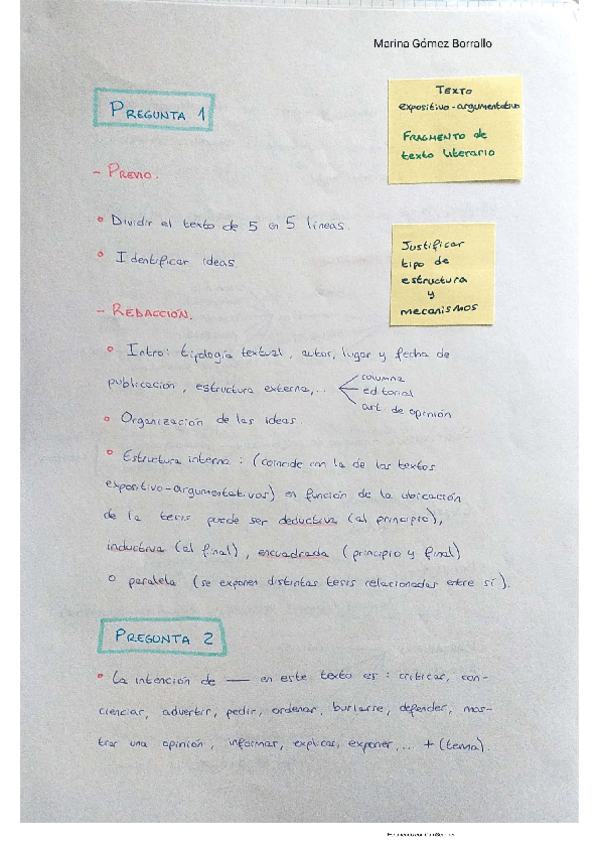 Marina Gómez Borrallo
PREGUNTA 1
TEXTO
expositivo-argumentativo
FRAGMENTO de
texto literario
- PREVIO.
• Dividir el texto de 5 en 5 líneas.
• Identificar ideas
Justificar
tipo de
estructura
y
mecanismos
- REDACCIÓN.
• Intro: tipología textual, autor, lugar y fecha de
publicación, estructura externa,..
columna
editorial
art. de opinión
• Organización de las ideas.
• Estructura interna: (coincide con la de los textos
expositivo-argumentativos) en función de la ubicación
de la tesis puede ser deductiva (al principio),
inductiva (al final), encuadrada (principio y final)
o paralela (se exponen distintas tesis relacionadas entre sí).
PREGUNTA 2
• La intención de — en este texto es: criticar, con-
cienciar, advertir, pedir, ordenar, burlarse, defender, mos-
trar una opinión, informar, explicar, exponer,... + (tema).